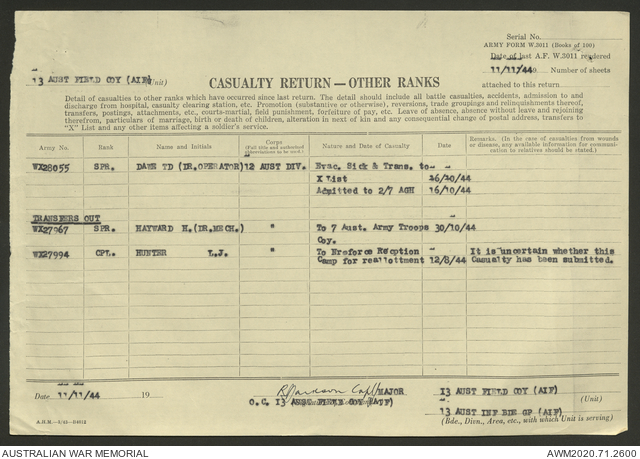 Serial No.
ARMY FORM W.3011 (Books of 100)
Date of last A.F. W.3011 rendered
13 AUST FIELD COY (AIF) (Unit)
11/11/44 Number of sheets
CASUALTY RETURN — OTHER RANKS
attached to this return
Detail of casualties to other ranks which have occurred since last return. The detail should include all battle casualties, accidents, admission to and
discharge from hospital, casualty clearing station, etc. Promotion (substantive or otherwise), reversions, trade groupings and relinquishments thereof,
transfers, postings, attachments, etc., courts-martial, field punishment, forfeiture of pay, etc. Leave of absence, absence without leave and rejoining
therefrom, particulars of marriage, birth or death of children, alteration in next of kin and any consequential change of postal address, transfers to
"X" List and any other items affecting a soldier's service.
Army No. Rank Name and Initials Corps (Full title and authorized abbreviations to be used.) Nature and Date of Casualty Date Remarks. (In the case of casualties from wounds or disease, any available information for communication to relatives should be stated.)
WX28055 SPR. DAWE TD (DR.OPERATOR) 12 AUST DIV. Evac. Sick & Trans. to
X List 16/10/44
Admitted to 2/7 AGH 16/10/44
TRANSFERS OUT
WX27967 SPR. HAYWARD H.(DR.MECH.) " To 7 Aust. Army Troops 30/10/44
Coy.
WX27994 CPL. HUNTER L.J. " To Nreforce Reception It is uncertain whether this
Camp for reallottment 12/8/44 Casualty has been submitted.
Date 11/11/44 19
Capt MAJOR
13 AUST FIELD COY (AIF) (Unit)
O.C. 13 AUST FIELD COY (AIF)
13 AUST INF BDE GP (AIF)
(Bde., Divn., Area, etc., with which Unit is serving)
AUSTRALIAN WAR MEMORIAL
AWM2020.71.2600